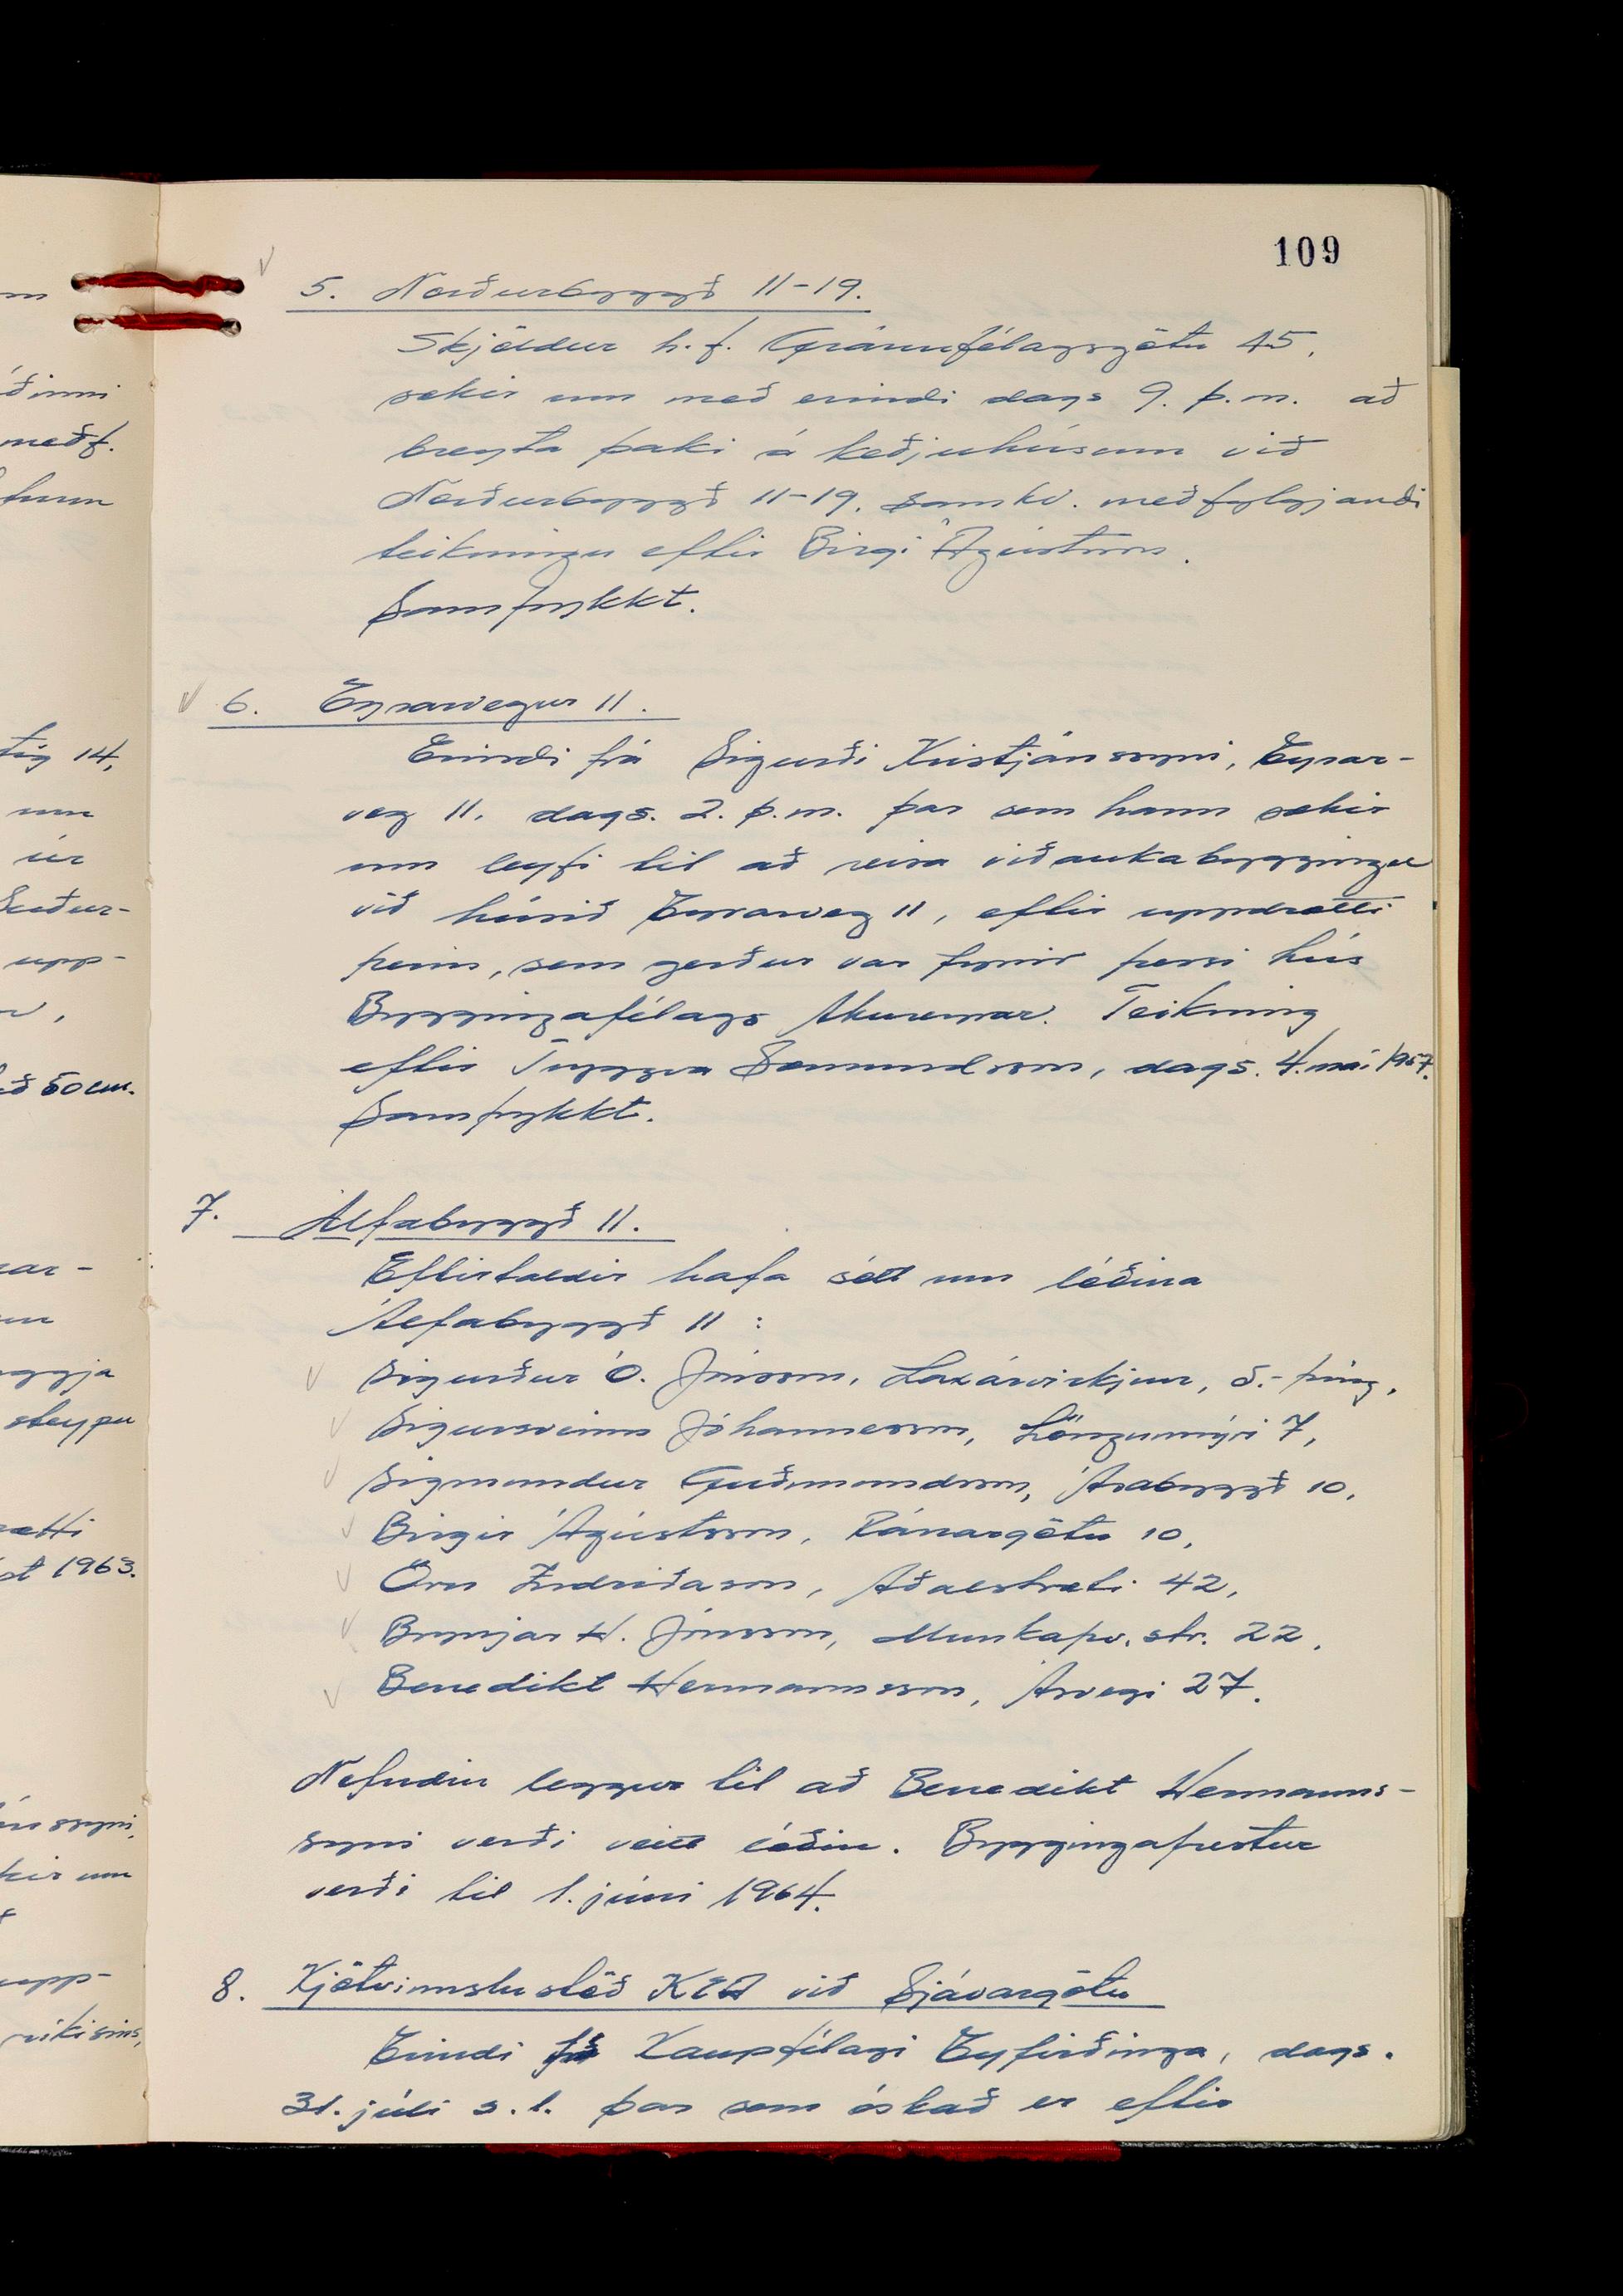 109
5. Norðurbyggð 11-19.
Skjöldur h.f. Gránufélagsgötu 45,
sækir um með erindi dags 9. þ.m. að
breyta þaki á keðjuhúsum við
Norðurbyggð 11-19. samkv. meðfylgjandi
teikningu eftir Birgi Ágústsson.
Samþykkt.
6. Eyrarvegur 11.
Erindi frá Sigurði Kristjánssyni, Eyrar-
veg 11. dags. 2. þ.m. þar sem hann sækir
um leyfi til að reisa viðaukabyggingu
við húsið Eyrarveg 11, eftir uppdrætti
þeim, sem gerður var fyrir þessi hús
Byggingafélags Akureyrar. Teikning
eftir Tryggva Sæmundsson, dags. 4. maí 1957.
Samþykkt.
7. Álfabyggð 11.
Eftirtaldir hafa sótt um lóðina
Álfabyggð 11 :
Sigurður Ó. Jónsson, Laxárvirkjun, S.-þing,
Sigursveinn Jóhannesson, Löngumýri 7,
Sigmundur Guðmundsson, Ásabyggð 10,
Birgir Ágústsson, Ránargötu 10,
Örn Indriðason, Aðalstræti 42,
Brynjar H. Jónsson, Munkaþv. str. 22.
Benedikt Hermannsson, Ásvegi 27.
Nefndin leggur til að Benedikt Hermanns-
syni verði veitt lóðin. Byggingafrestur
verði til 1. júní 1964.
8. Kjötvinnslustöð KEA við Sjávargötu
Erindi frá Kaupfélagi Eyfirðinga, dags.
31. júlí s.l. þar sem óskað er eftir
ðinni
meðf.
tíg 14,
um
úr
Suður-
upp-
50 cm.
yggja
steypu
ætti
1963.
ssyni,
um
upp-
ríkisins,